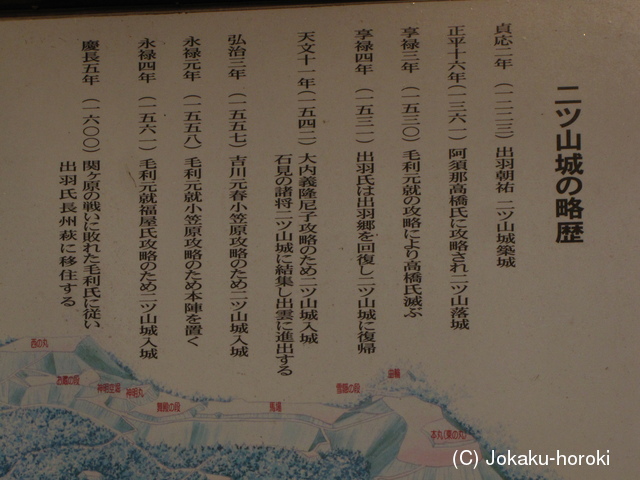 二ツ山城の略歴
貞応二年(一二二三)出羽朝祐 二ツ山城築城
正平十六年(一三六一)阿須那高橋氏に攻略され二ツ山落城
享禄三年(一五三〇)毛利元就の攻略により高橋氏滅ぶ
享禄四年(一五三一)出羽氏は出羽郷を回復し二ツ山城に復帰
天文十一年(一五四二)大内義隆尼子攻略のため二ツ山城入城
石見の諸将二ツ山城に結集し出雲に進出する
弘治三年(一五五七)吉川元春小笠原攻略のため二ツ山城入城
永禄元年(一五五八)毛利元就小笠原攻略のため本陣を置く
永禄四年(一五六一)毛利元就福屋氏攻略のため二ツ山城入城
慶長五年(一六〇〇)関ヶ原の戦いに敗れた毛利氏に従い
出羽氏長州萩に移住する
西の丸
お蔵の段
神明空堀
神明丸
馬場
本丸(東の丸)
(C) Jokaku-horoki